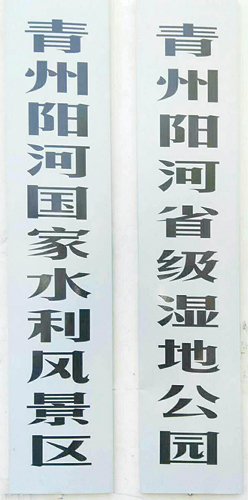 青州阳河国家水利风景区
青州阳河省级湿地公园